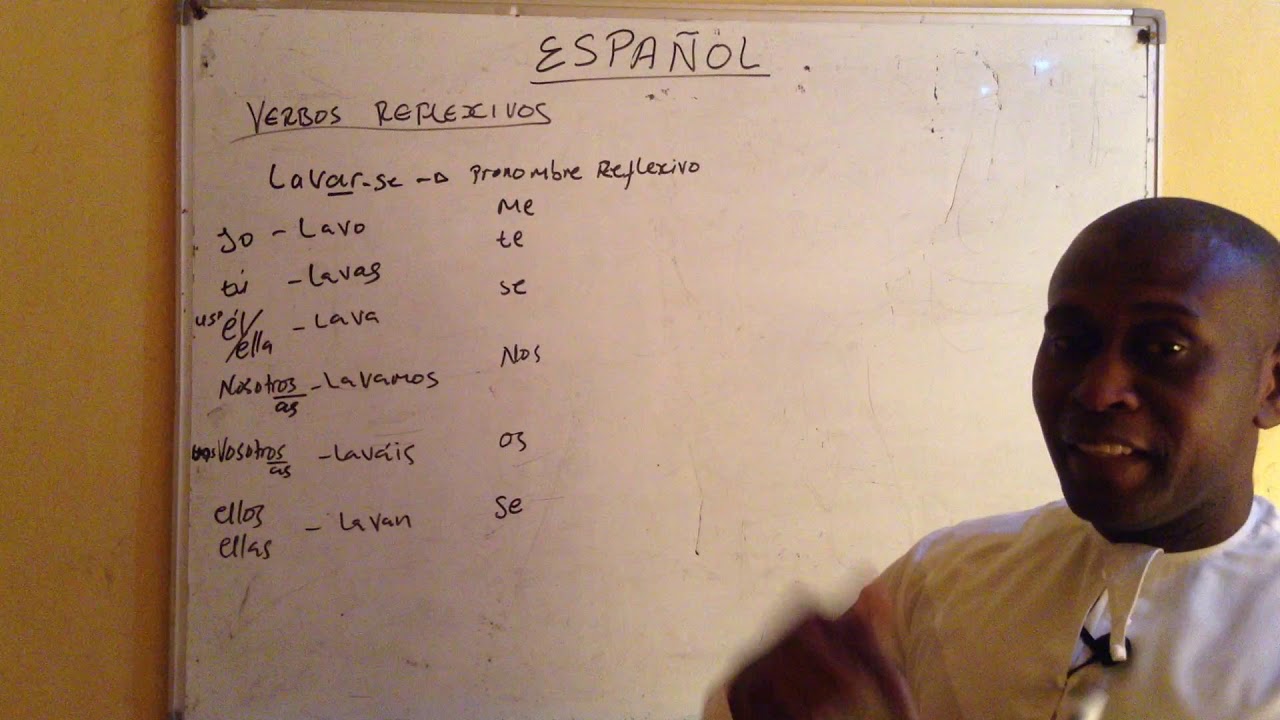 ESPAÑOL
VERBOS REFLEXIVOS
Lavar-se → Pronombre Reflexivo
Me
yo - Lavo
te
tú - Lavas
se
usp él/ - Lava
ella
Nos
Nosotros - Lavamos
as
os
Vosotros - Laváis
as
ellos
Se
- Lavan
ellas